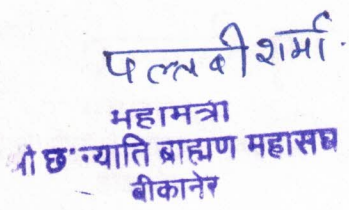 पल्लवी शर्मा
महामत्रा
श्री छ: न्याति ब्राह्मण महासघ
बीकानेर